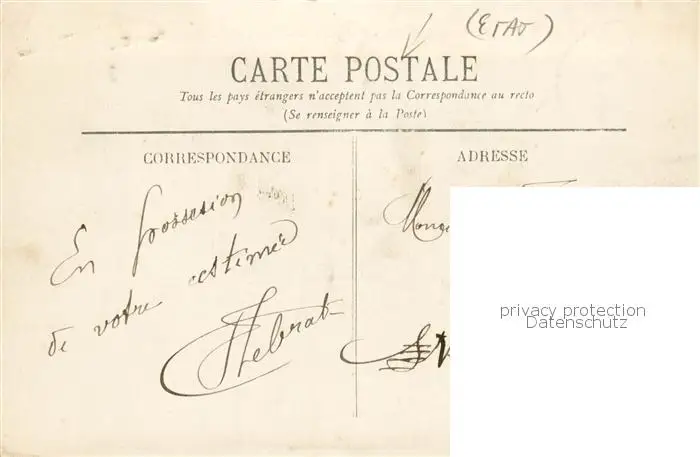 (ETAT)
CARTE POSTALE
Tous les pays étrangers n'acceptent pas la Correspondance au recto
(Se renseigner à la Poste)
CORRESPONDANCE
ADRESSE
En possession
de votre estimée
privacy protection
Datenschutz